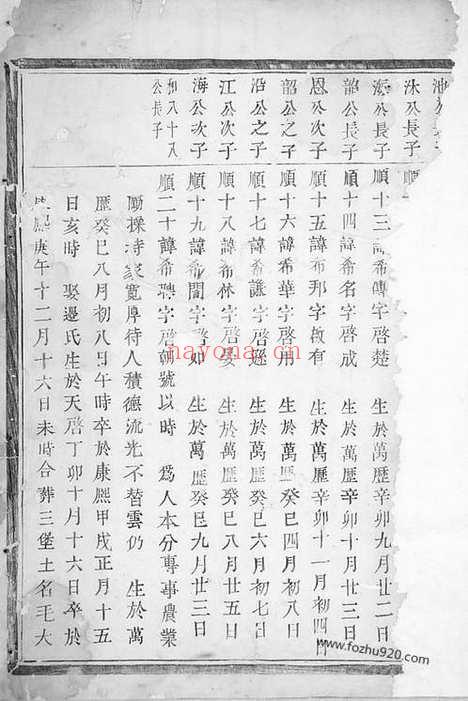 池公
沐公長子 順
海公長子 順十三諱希傳字啓楚 生於萬歷辛卯九月廿二日
韶公長子 順十四諱希名字啓成 生於萬歷辛卯十月廿三日
恩公次子 順十五諱希邦字啟有 生於萬歷辛卯十一月初四
韶公之子 順十六諱希華字啓用 生於萬歷癸巳四月初八日
沿公之子 順十七諱希謙字啓 生於萬歷癸巳六月初七日
江公次子 順十八諱希林字啓晏 生於萬歷癸巳八月廿五日
海公次子 順十九諱希闇字啓如 生於萬歷癸巳九月廿三日
和八十八公長子 順二十諱希聘字啓朝號以時 爲人本分專事農業
勵操持家寬厚待人積德流光不替雲仍 生於萬
歷癸巳八月初八日午時卒於康熙甲戌正月十五
日亥時 娶邊氏生於天啓丁卯十月十六日卒於
康熙庚午十二月十六日未時合葬三堡土名毛大
nayona.cn
www.fozhu920.com